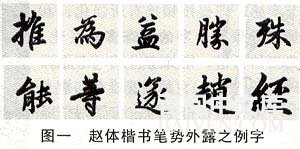 推 為 益 勝 殊
能 等 遂 趙 經
图一 赵体楷书笔势外露之例字